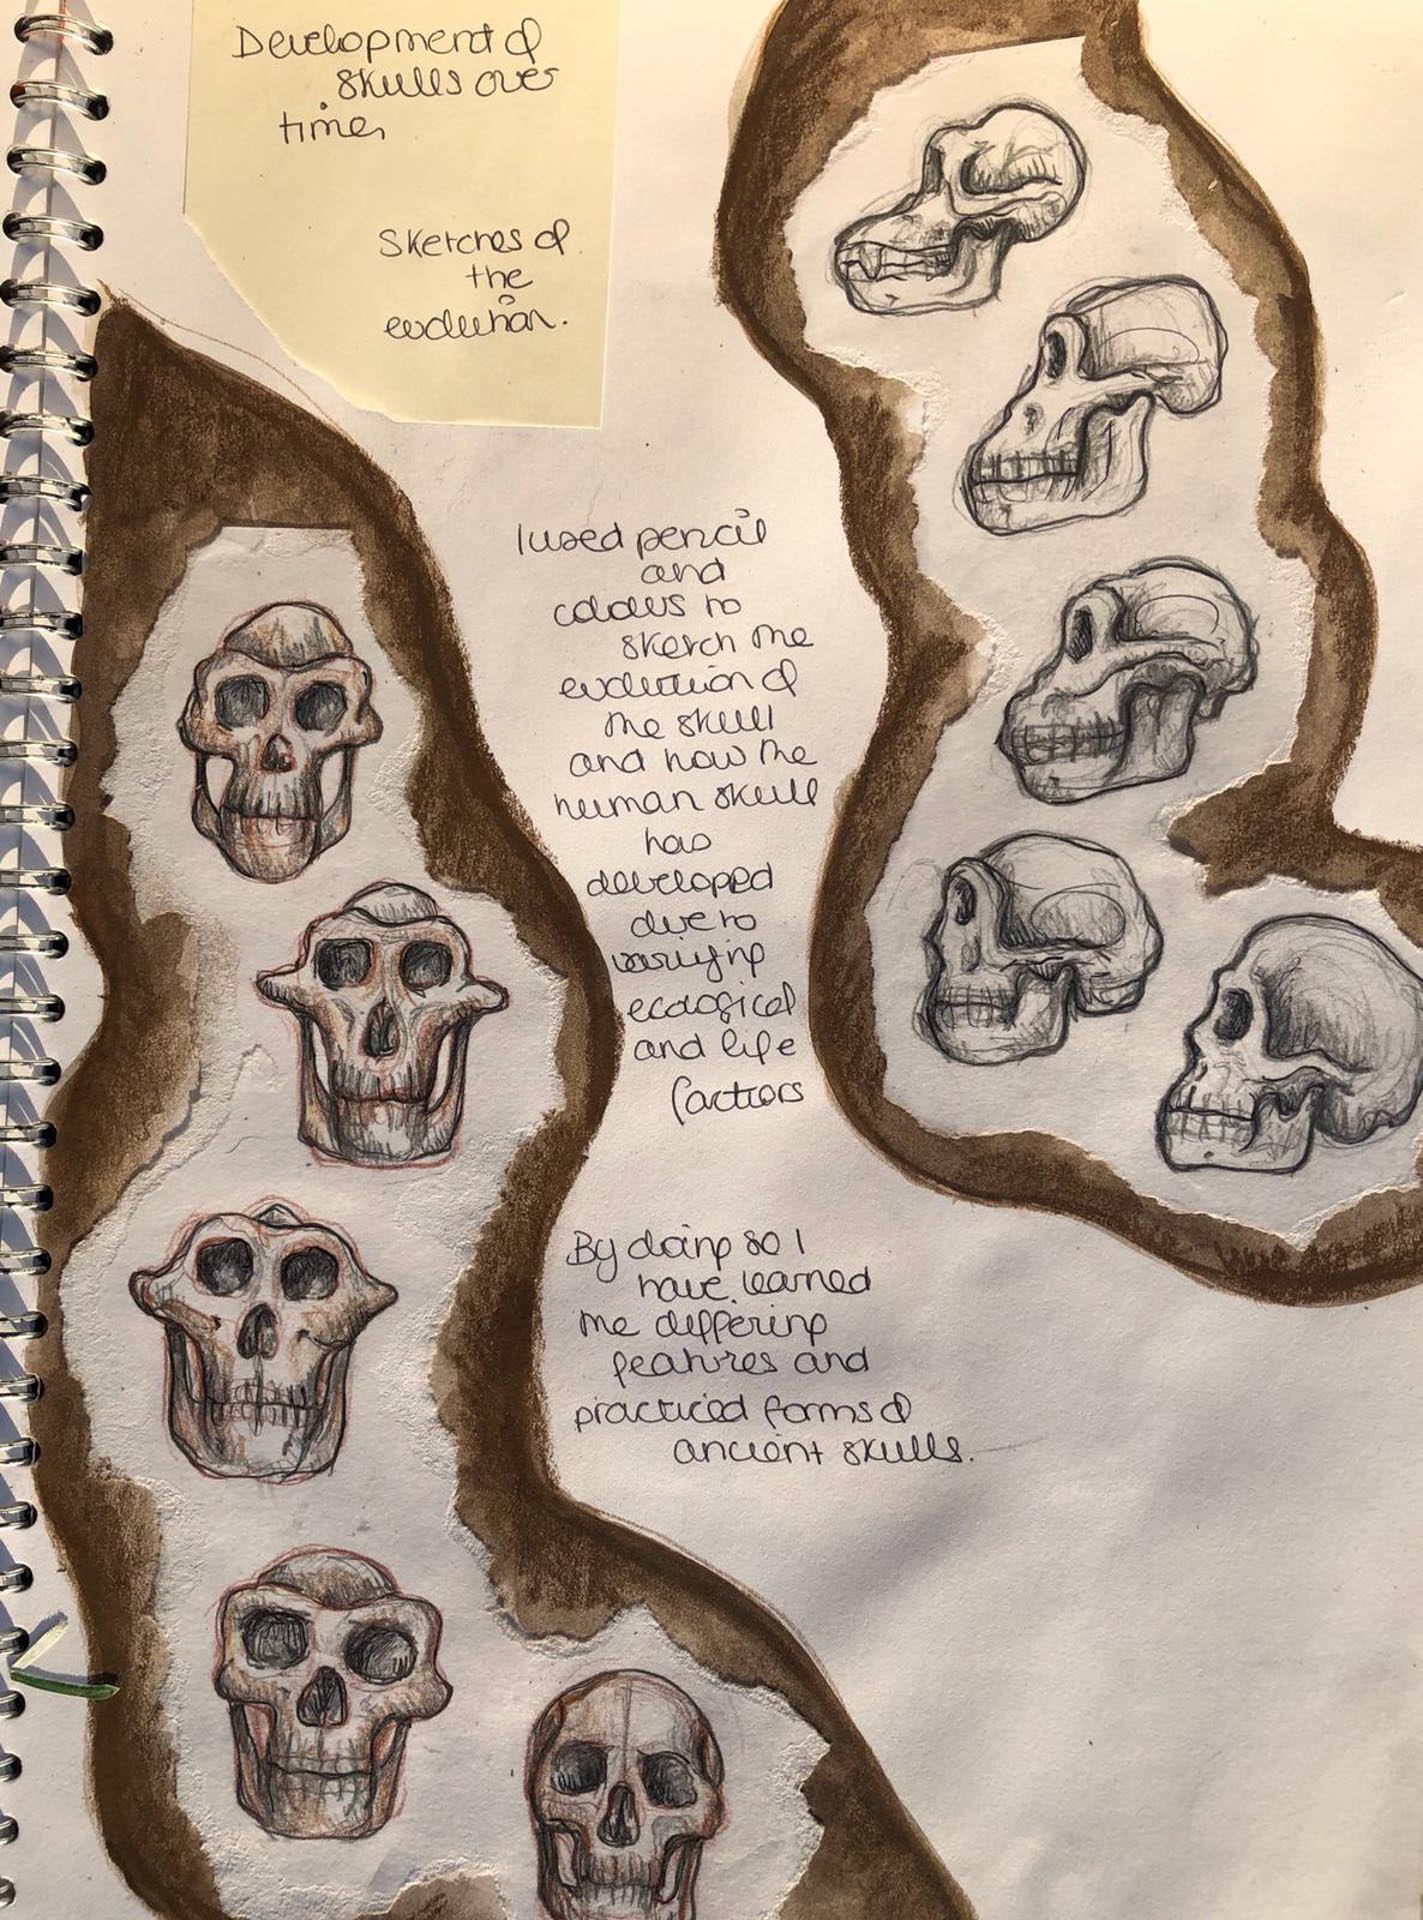 Development of
skulls over
time,
Sketches of
the
evolution.
I used pencil
and
colours to
sketch the
evolution of
the skull
and how the
human skull
has
developed
due to
varying
ecological
and life
factors
By doing so I
have learned
the differing
features and
practiced forms of
ancient skulls.